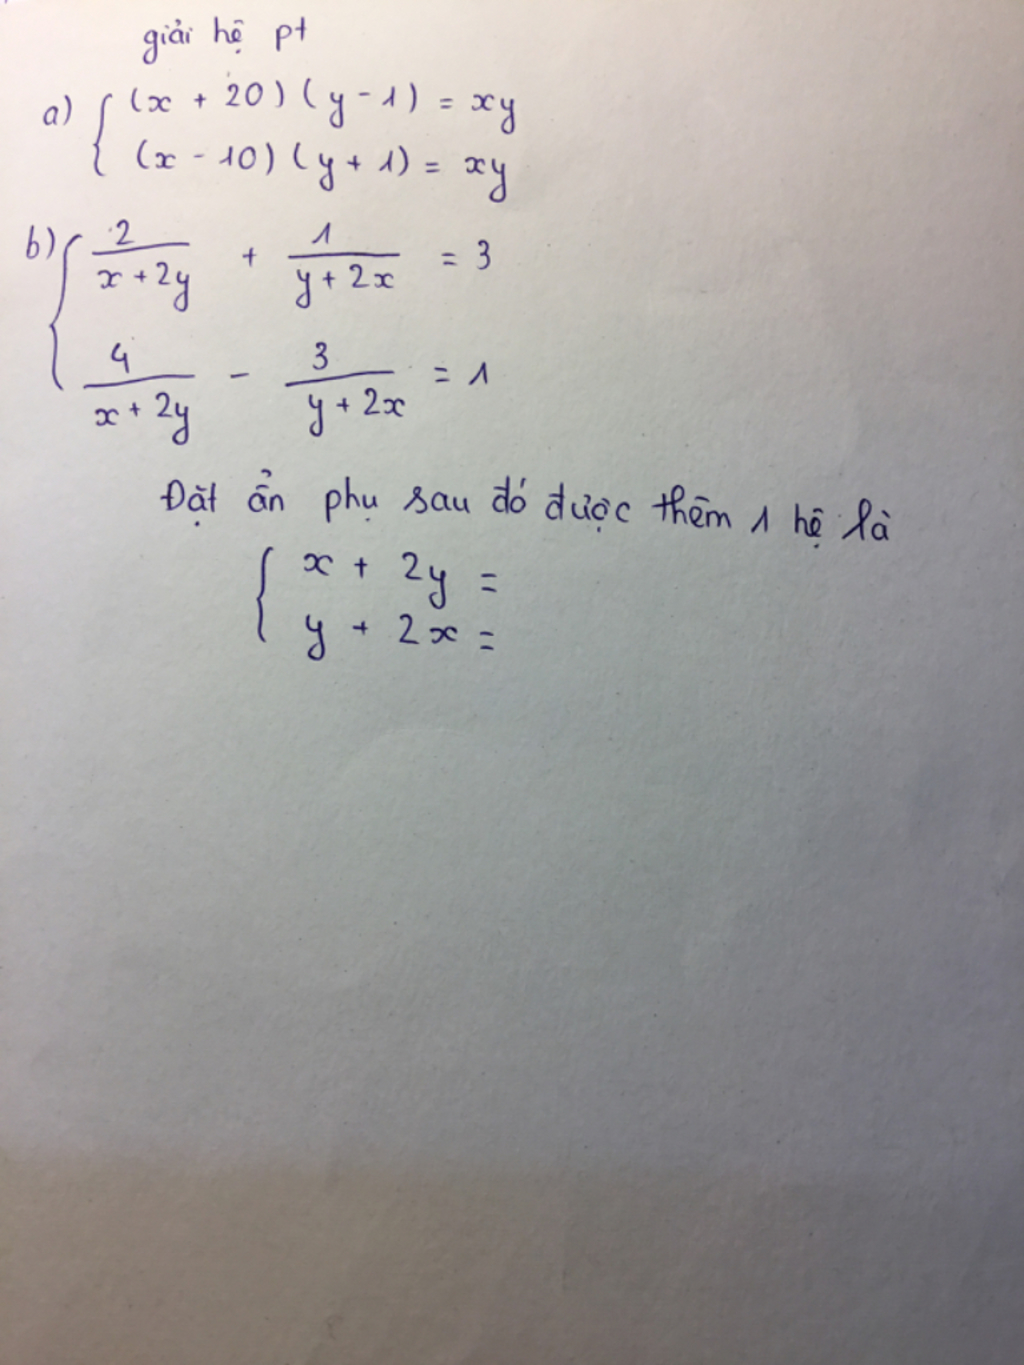 giải hệ pt
a) { (x + 20) (y - 1) = xy
(x - 10) (y + 1) = xy
b) { 2/(x + 2y) + 1/(y + 2x) = 3
4/(x + 2y) - 3/(y + 2x) = 1
Đặt ẩn phụ sau đó được thêm 1 hệ là
{ x + 2y =
y + 2x =